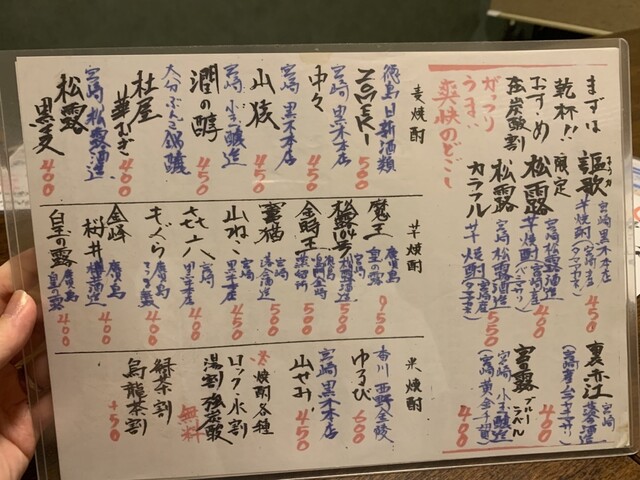 まずは
乾杯!!
おすすめ
強炭酸割
がっつり
うまい
爽快のどごし
謳歌
宮崎 黒木本店
芋焼酎
450
限定
松露
宮崎 松露酒造
芋焼酎
400
松露
カラフル
宮崎 松露酒造
芋焼酎
550
裏赤江
宮崎
落合酒造
400
宮の露
ブルーラベル
宮崎
400
麦焼酎
徳島 日新酒類
500
中々
宮崎 黒木本店
400
山猿
宮崎
450
潤の醇
宮崎 小玉醸造
450
杜屋
大分 ぶんご銘醸
400
松露
黒麦
宮崎 松露酒造
400
芋焼酎
魔王
鹿児島
950
松露104号
宮崎
松露酒造
500
金時王
500
竈猫
宮崎
落合酒造
500
山ねこ
宮崎
黒木本店
450
㐂六
宮崎
黒木本店
400
もぐら
鹿児島
400
金峰
桜井
鹿児島
櫻井酒造
400
白玉の露
鹿児島
400
米焼酎
ゆるび
香川 西野金陵
600
山せみ
宮崎 黒木本店
450
※焼酎各種
ロック 水割
湯割 強炭酸
無料
緑茶割
烏龍茶割
+50